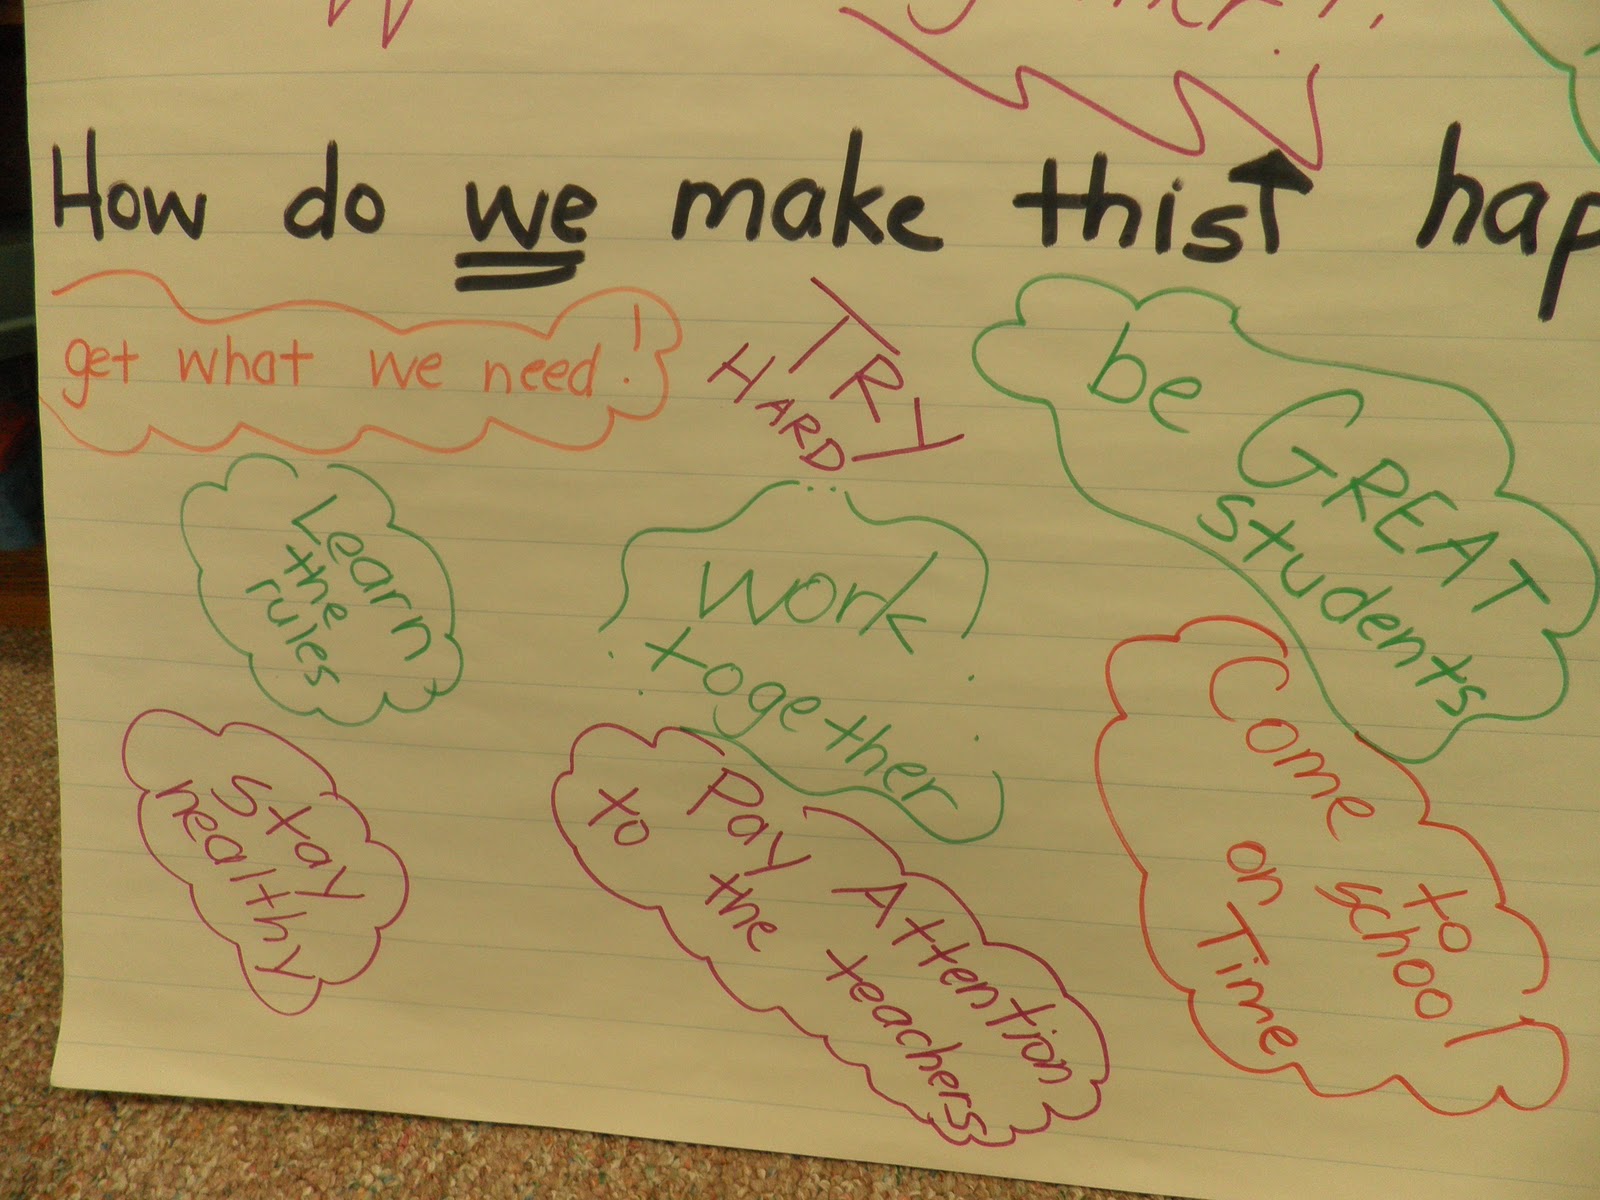 How do we make this hap
get what we need!
TRY
HARD
be GREAT
students
Learn
the
rules
work
together
Come to
school
on
Time
Stay
healthy
Pay Attention
to the teachers